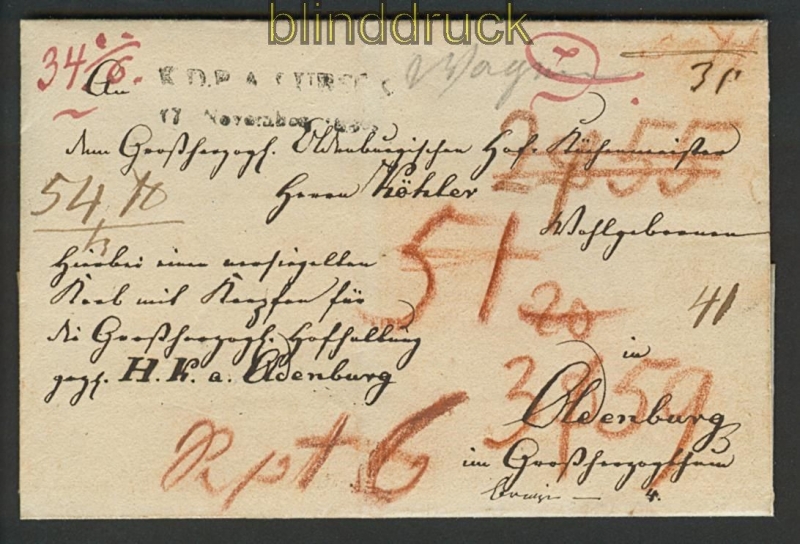 blinddruck
34
An
K.D.P.A.
17 November
Wagen
31
dem Großherzogl. Oldenburgischen Hof-Küchenmeister
2 55
54
Herrn Köhler
Wohlgeboren
51
Hierbei einen versiegelten
Korb mit Karpfen für
die Großherzogl. Hofhaltung
gez. H. K. a. Oldenburg
41
20
in
Oldenburg
39 59
6
im Großherzogthum